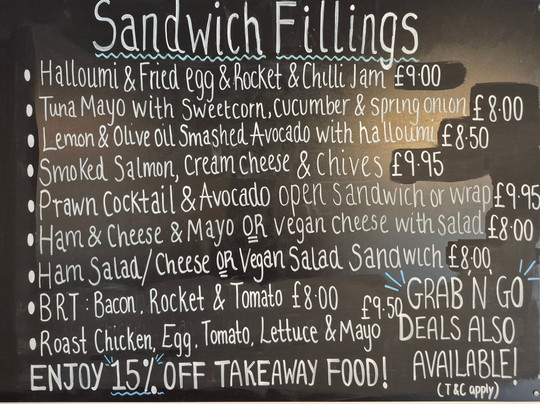 Sandwich Fillings
• Halloumi & Fried egg & Rocket & Chilli Jam £9.00
• Tuna Mayo with Sweetcorn, cucumber & spring onion £8.00
• Lemon & Olive oil Smashed Avocado with halloumi £8.50
• Smoked Salmon, Cream cheese & Chives £9.95
• Prawn Cocktail & Avocado open sandwich or wrap £9.95
• Ham & Cheese & Mayo OR vegan cheese with salad £8.00
• Ham Salad/Cheese OR Vegan Salad Sandwich £8.00
• BRT: Bacon, Rocket & Tomato £8.00
• Roast Chicken, Egg, Tomato, Lettuce & Mayo £9.50
ENJOY 15% OFF TAKEAWAY FOOD!
GRAB 'N' GO
DEALS ALSO
AVAILABLE!
(T&C apply)